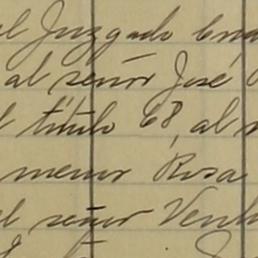 el Juzgado
al señor José
título 68, al
menor Rosa
el señor